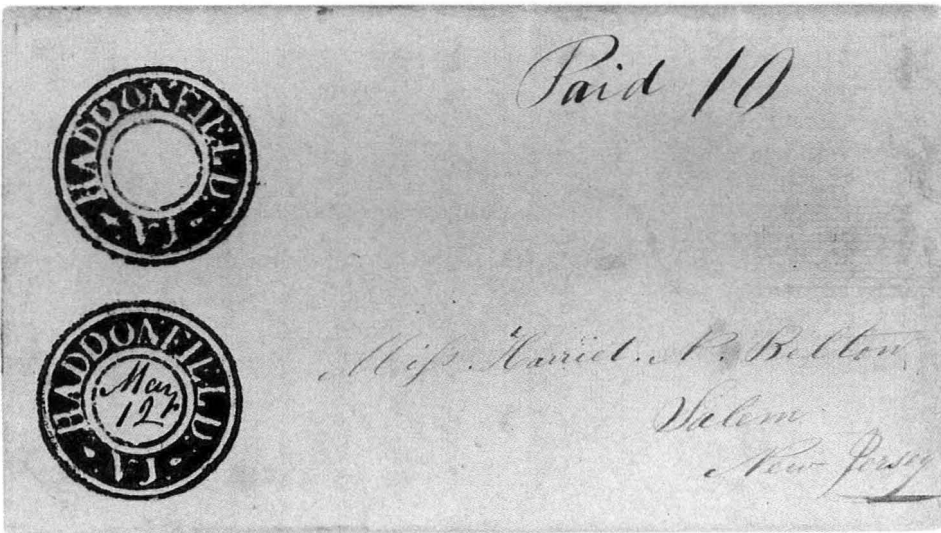 Paid 10
HADDONFIELD.
NJ
HADDONFIELD.
NJ
May
12
Miss Harriet. N. Bilton
Salem
New Jersey